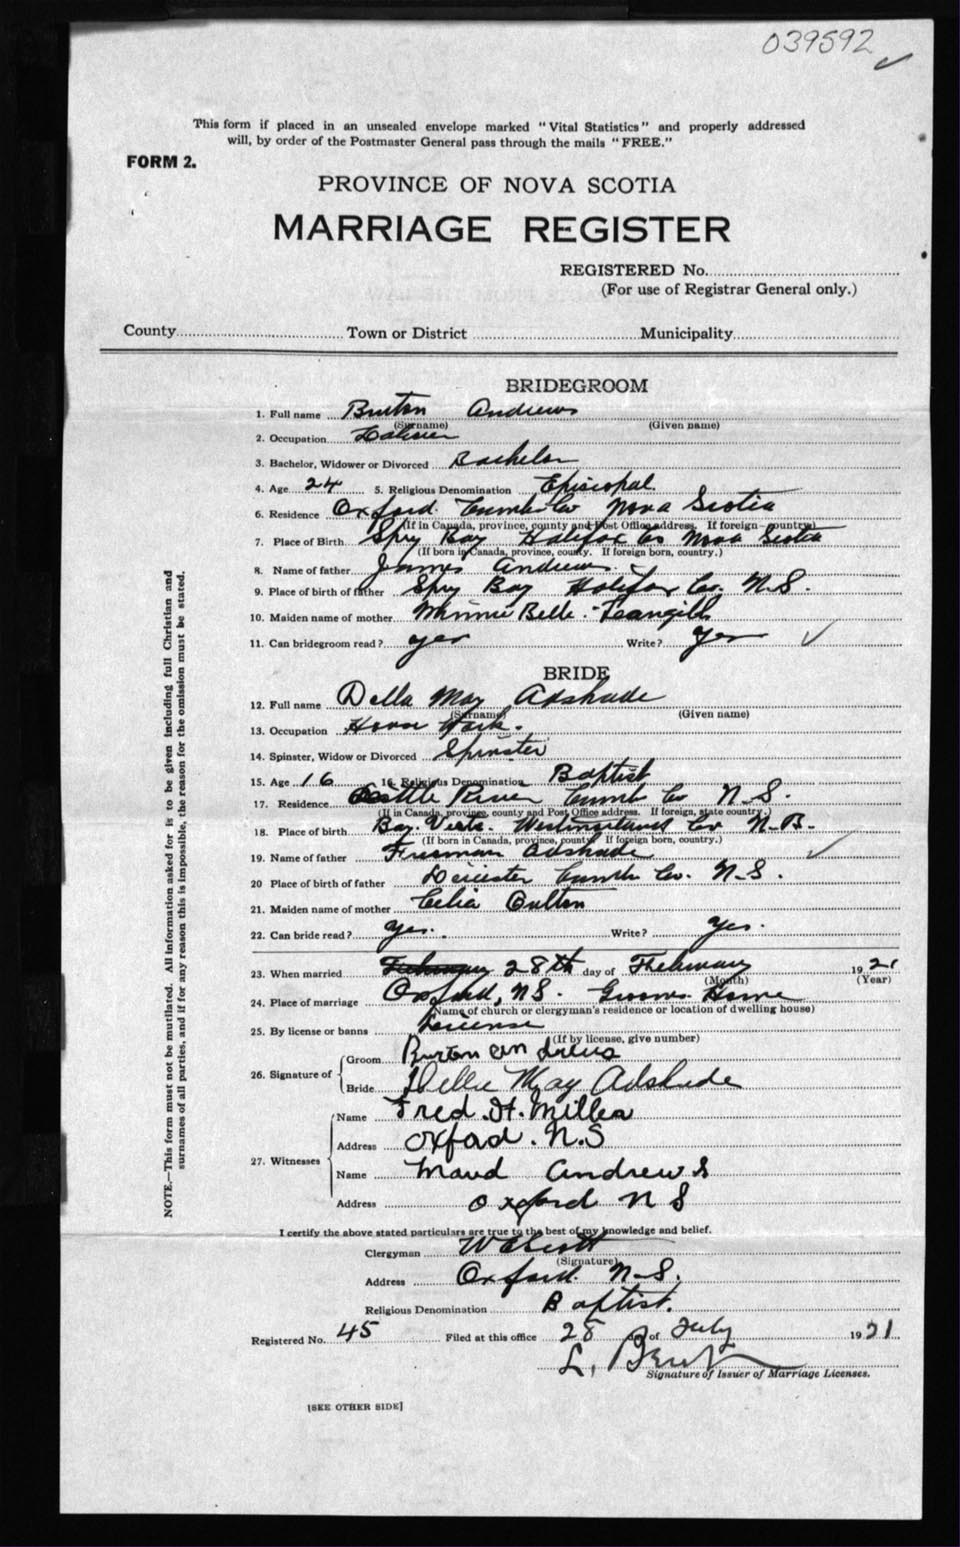 039592
This form if placed in an unsealed envelope marked "Vital Statistics" and properly addressed
will, by order of the Postmaster General pass through the mails "FREE."
FORM 2.
PROVINCE OF NOVA SCOTIA
MARRIAGE REGISTER
REGISTERED No.
(For use of Registrar General only.)
County Town or District Municipality
BRIDEGROOM
1. Full name Burton Andrews
(Surname) (Given name)
2. Occupation
3. Bachelor, Widower or Divorced Bachelor
4. Age 24 5. Religious Denomination Episcopal
6. Residence Oxford Cumb Co Nova Scotia
(If in Canada, province, county and Post Office address. If foreign country)
7. Place of Birth Spry Bay Halifax Co Nova Scotia
(If born in Canada, province, county. If foreign born, country.)
8. Name of father James Andrews
9. Place of birth of father Spry Bay Halifax Co. N.S.
10. Maiden name of mother Minnie Belle
11. Can bridegroom read? yes Write? yes
BRIDE
12. Full name Della May Adshade
(Surname) (Given name)
13. Occupation House Work.
14. Spinster, Widow or Divorced Spinster
15. Age 16 16. Religious Denomination Baptist
17. Residence River Cumb Co N.S.
(If in Canada, province, county and Post Office address. If foreign, state country.)
18. Place of birth Bay. Verte. Westmorland Co N.B.
(If born in Canada, province, county. If foreign born, country.)
19. Name of father Freeman Adshade
20 Place of birth of father Leicester Cumb Co. N.S.
21. Maiden name of mother Celia Oulton
22. Can bride read? yes. Write? yes.
23. When married 28th day of February 1921
(Month) (Year)
24. Place of marriage Oxford, N.S. Grooms Home
(Name of church or clergyman's residence or location of dwelling house)
25. By license or banns License
(If by license, give number)
26. Signature of Groom Burton Andrews
Bride Della May Adshade
27. Witnesses Name Fred. H. Miller
Address Oxford. N.S
Name Maud Andrews
Address Oxford N S
I certify the above stated particulars are true to the best of my knowledge and belief.
Clergyman
(Signature)
Address Oxford. N.S.
Religious Denomination Baptist.
Registered No. 45 Filed at this office 28 day of July 1921
L.
Signature of Issuer of Marriage Licenses.
[SEE OTHER SIDE]
NOTE.—This form must not be mutilated. All information asked for is to be given including full Christian and
surnames of all parties, and if for any reason this is impossible, the reason for the omission must be stated.